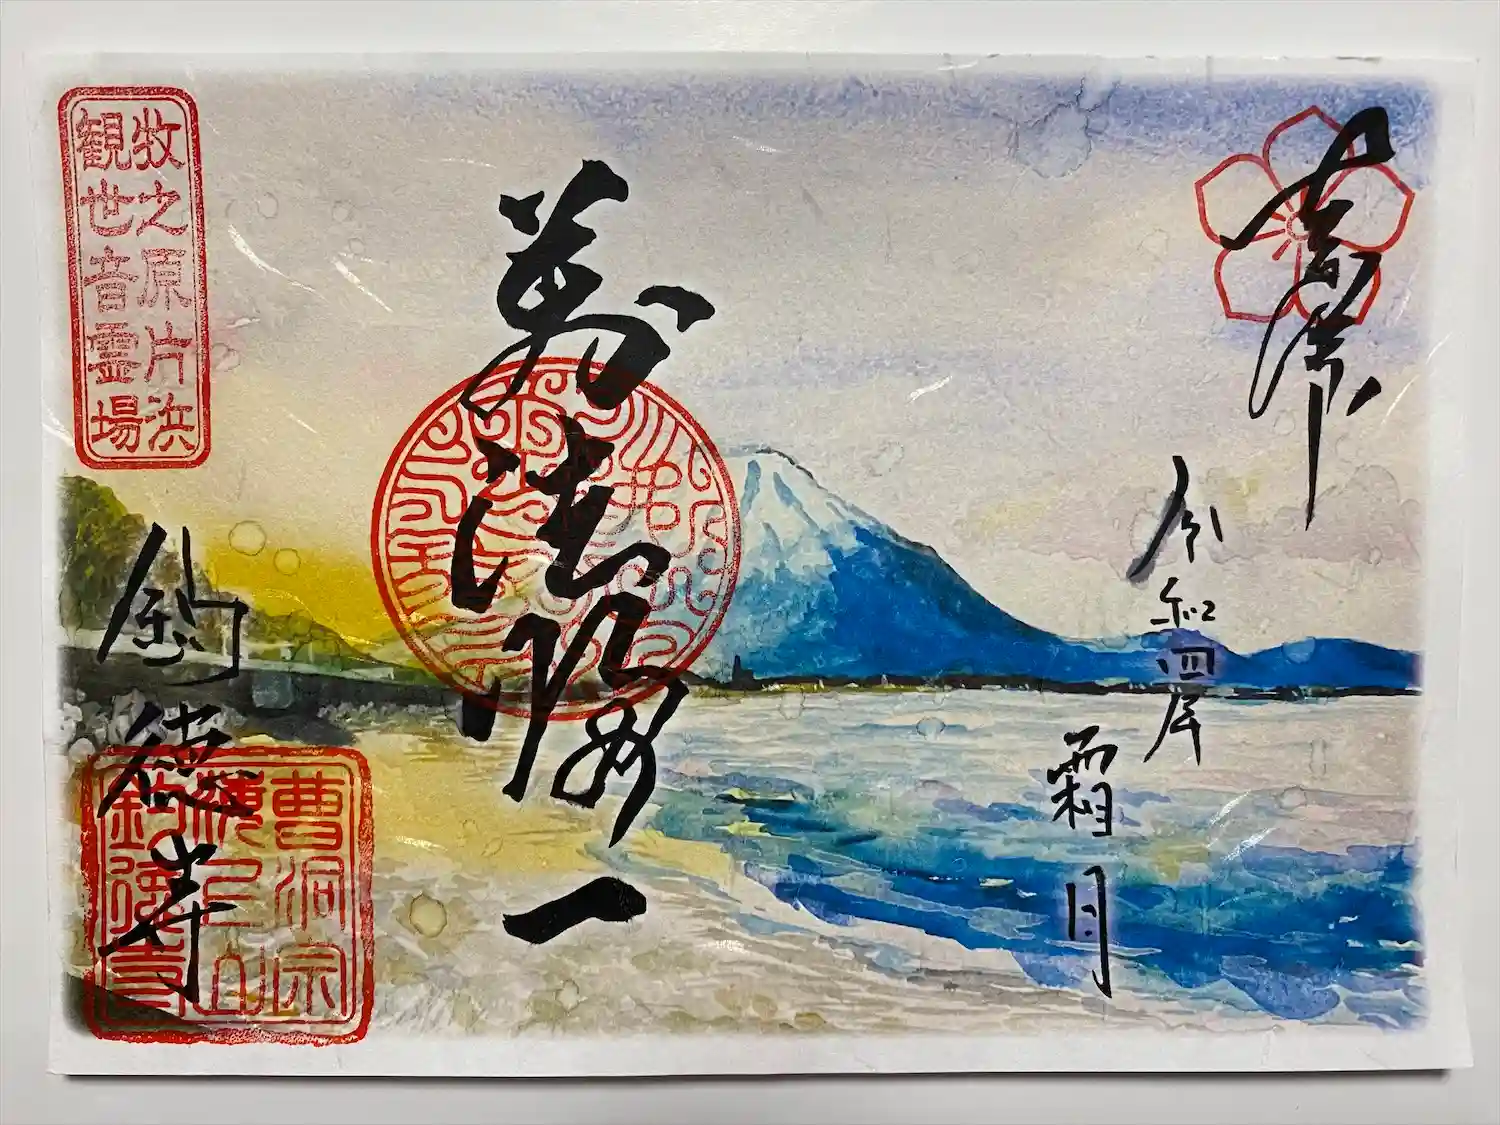 令和四年
霜月
萬法帰一
牧之原片浜
観世音霊場
釣徳寺
曹洞宗
釣徳寺